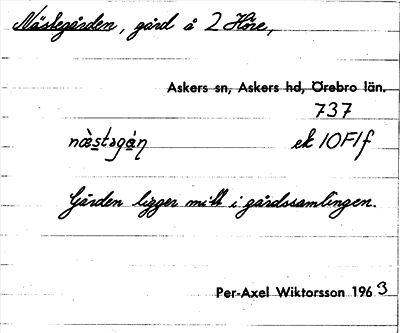 Nästegården, gård å 2 Höre,
Askers sn, Askers hd, Örebro län.
737
næ̀stəgán̥ ek 10F1f
Gården ligger mitt i gårdssamlingen.
Per-Axel Wiktorsson 1963